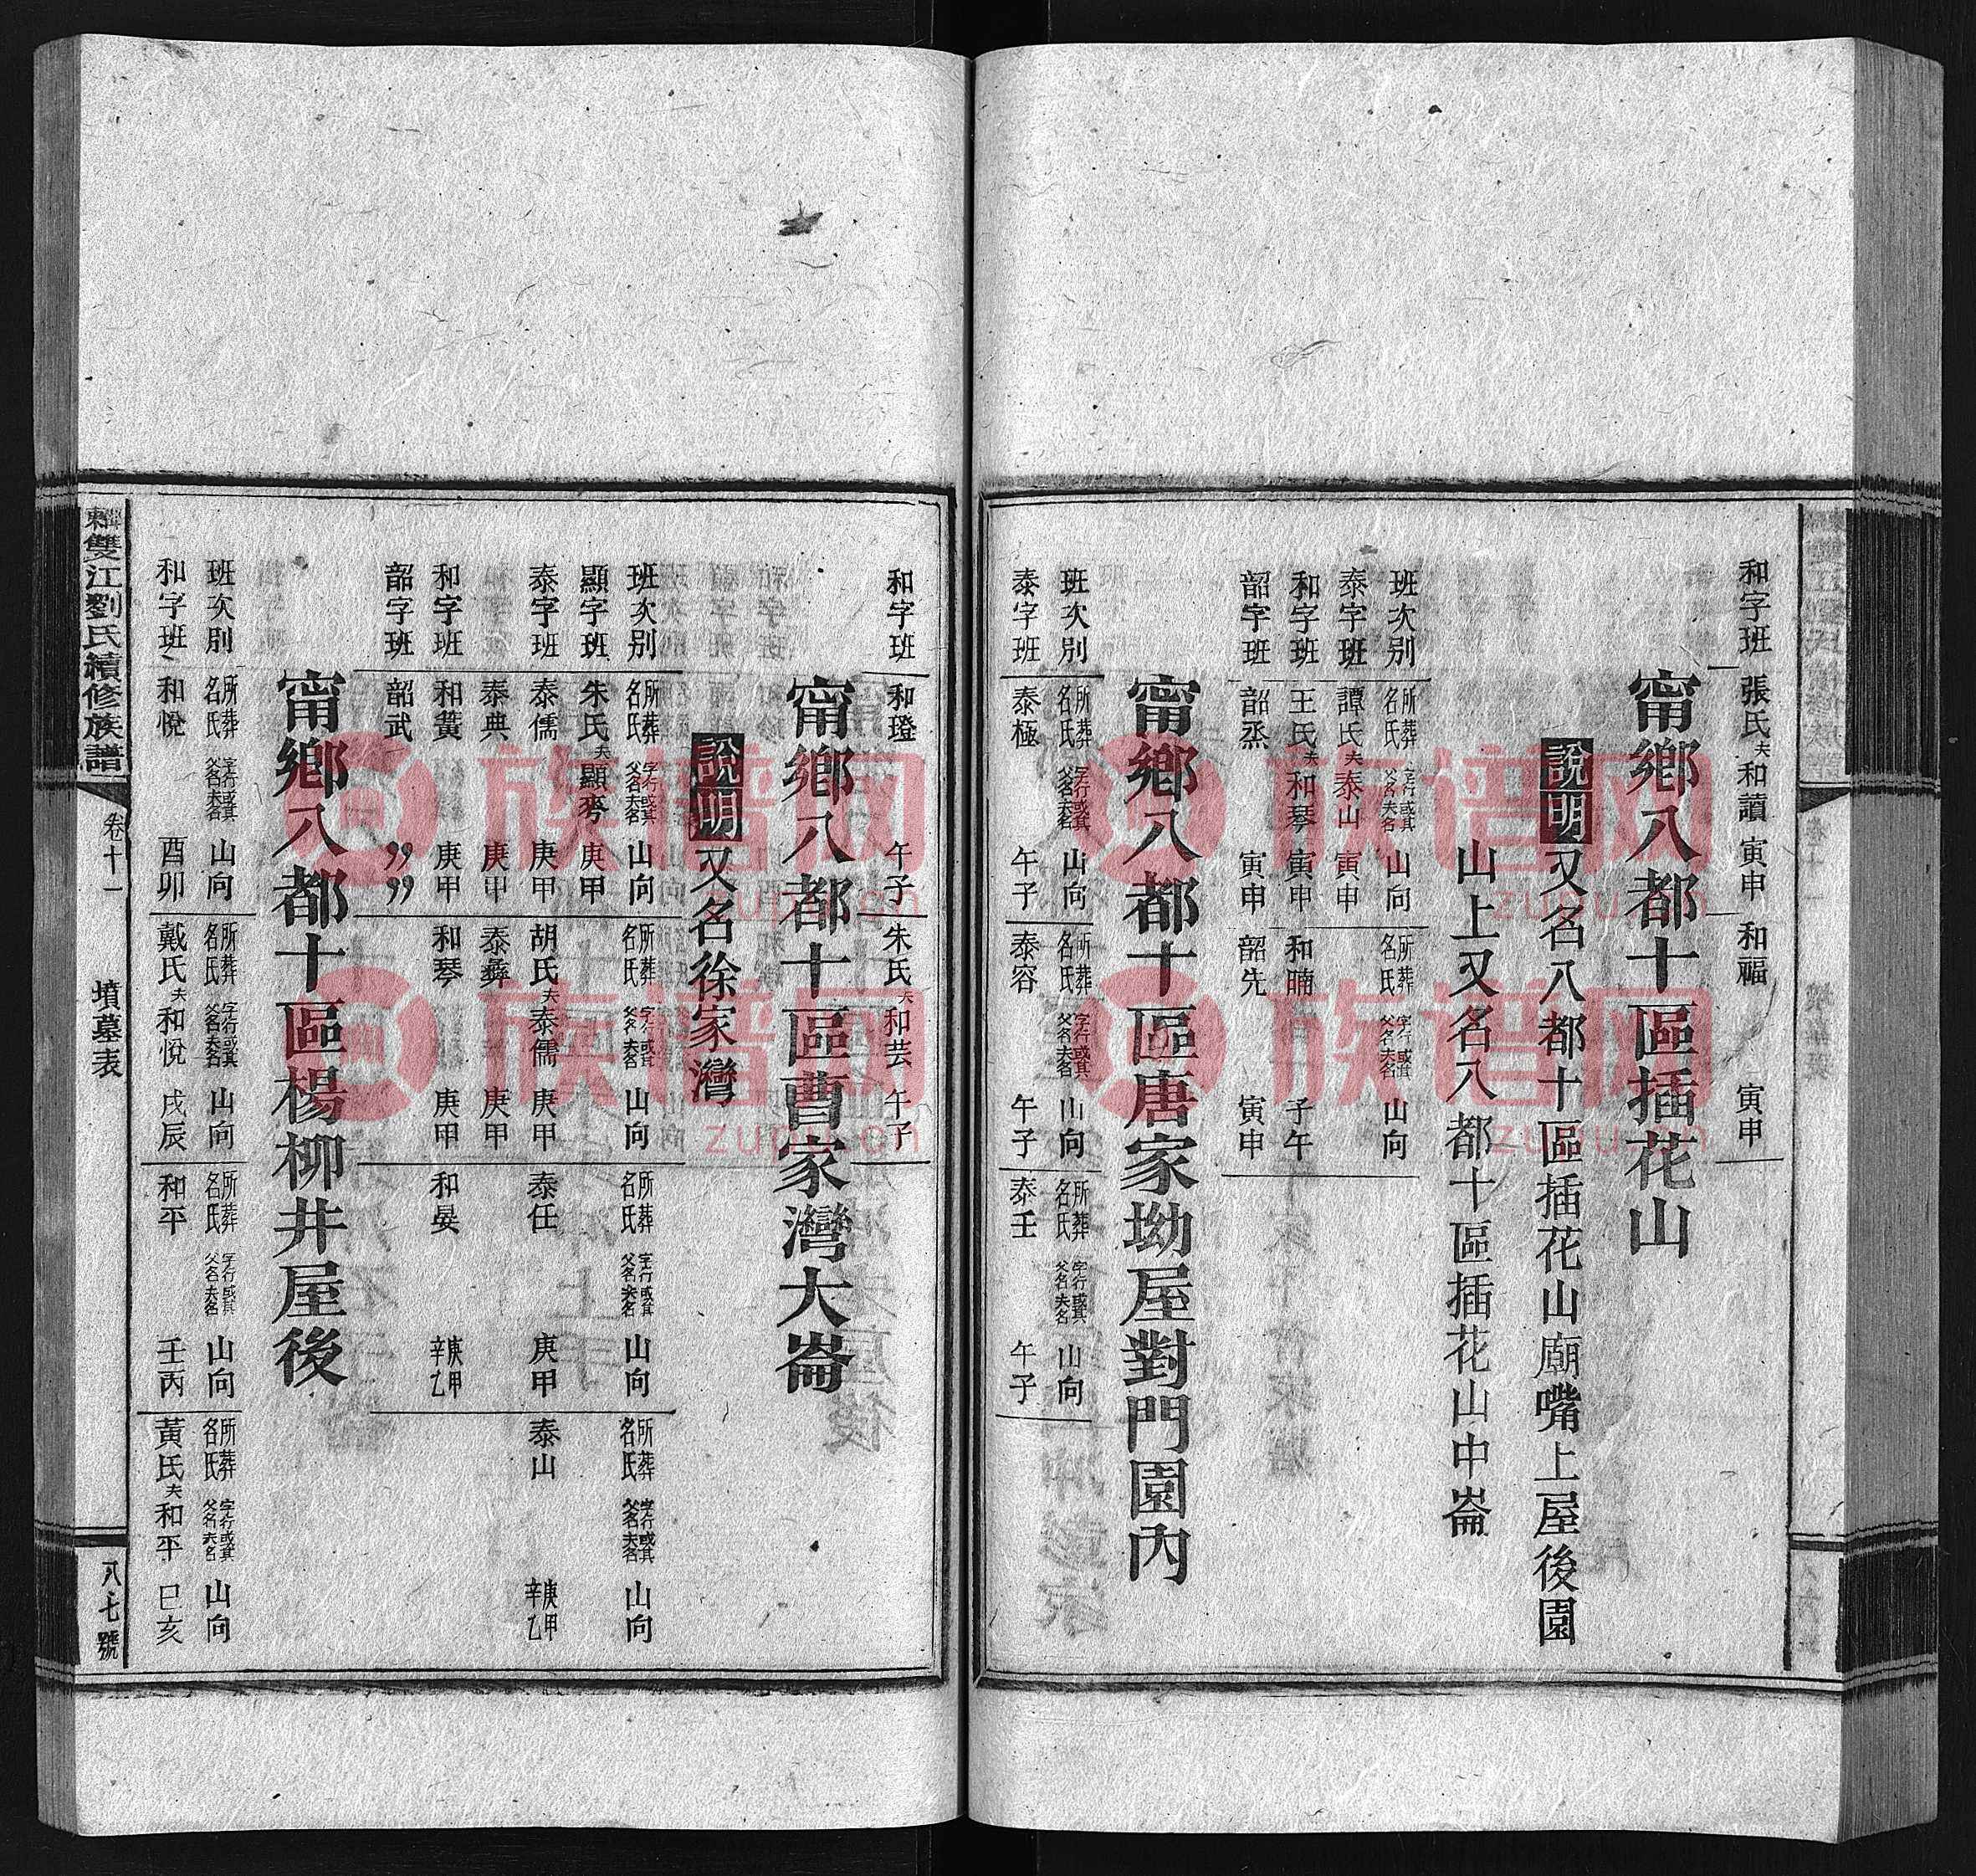 和字班 張氏夫和讀 寅申 和福 寅申
甯鄉八都十區插花山
說明 又名八都十區插花山廟嘴上屋後園
山上又名八都十區插花山中崙
班次別 所葬名氏 字行或其父名夫名 山向 所葬名氏 字行或其父名夫名 山向
泰字班 譚氏夫泰山 寅申
和字班 王氏夫和琴 寅申 和喃 子午
韶字班 韶烝 寅申 韶先 寅申
甯鄉八都十區唐家坳屋對門園內
班次別 所葬名氏 字行或其父名夫名 山向 所葬名氏 字行或其父名夫名 山向 所葬名氏 字行或其父名夫名 山向
泰字班 泰極 午子 泰容 午子 泰壬 午子
和字班 和璒 午子 朱氏夫和芸 午子
甯鄉八都十區曹家灣大崙
說明 又名徐家灣
班次別 所葬名氏 字行或其父名夫名 山向 所葬名氏 字行或其父名夫名 山向 所葬名氏 字行或其父名夫名 山向 所葬名氏 字行或其父名夫名 山向
顯字班 朱氏夫顯夸 庚甲
泰字班 泰儒 庚甲 胡氏夫泰儒 庚甲 泰任 庚甲 泰山 庚甲辛乙
泰典 庚甲 泰彝 庚甲
和字班 和簧 庚甲 和琴 庚甲 和晏 庚甲辛乙
韶字班 韶武 〃〃
甯鄉八都十區楊柳井屋後
班次別 所葬名氏 字行或其父名夫名 山向 所葬名氏 字行或其父名夫名 山向 所葬名氏 字行或其父名夫名 山向 所葬名氏 字行或其父名夫名 山向
和字班 和悅 酉卯 戴氏夫和悅 戌辰 和平 壬丙 黃氏夫和平 巳亥
雙江劉氏續修族譜 卷十一 墳墓表 八七號
族谱网
zupu.cn
族谱网
zupu.cn
族谱网
zupu.cn
族谱网
zupu.cn